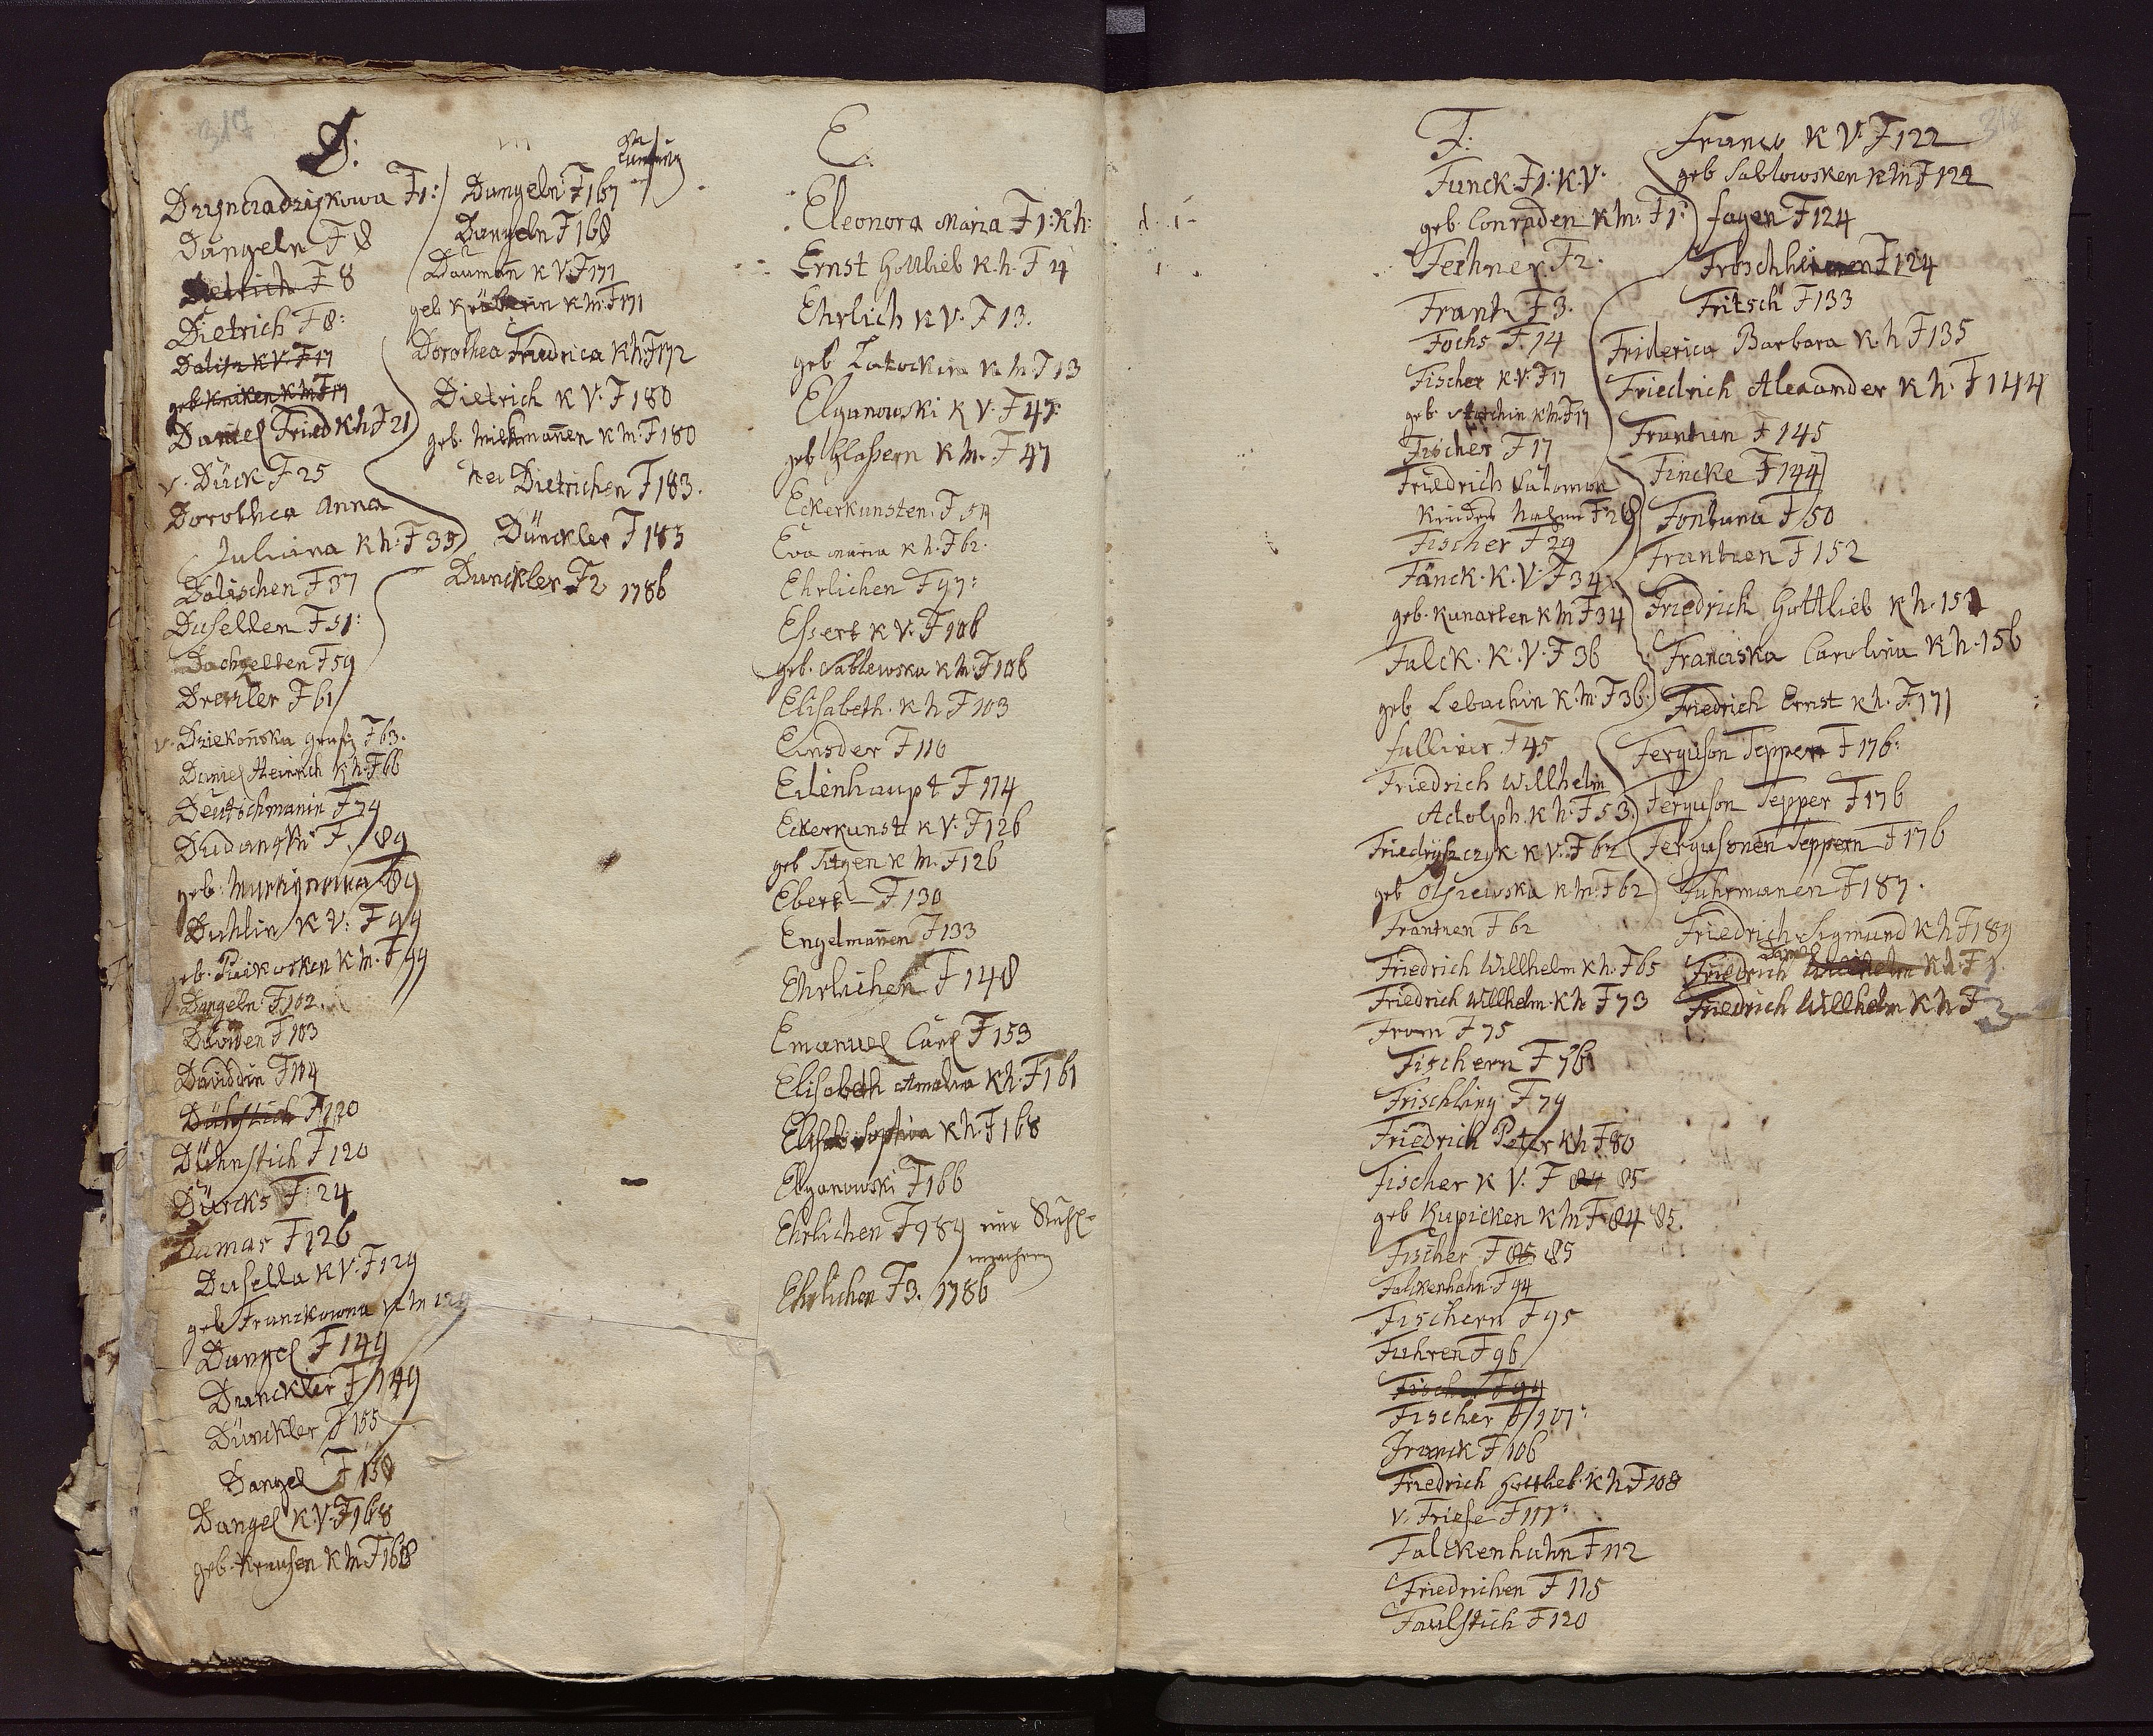 317
D:
Dangeln F 8
Dietrich F 8
Dietrich F 8:
Dalisz K V. F 17
geb. Kniken K M F 17
Daniel Fried K h F 21
v. Dück F 25
Dorothea Anna
Juliana K h. F 35
Dalischen F 37
Dusellen F 51:
Dachzelten F 59
Drexler F 61
v. Dziekońska F 63.
Daniel Heinrich K h. F 66
Deutschmanin F 74
F. 89
geb. 89
Duhlin K V: F 94
geb. K M. F 94
Dangeln F 102.
Daviden F 103
Daviddin F 114
F 120
Dühnstich F 120
Dürcks F: 24
Dumas F 126
Dusella K V. F 129
geb Franzkowna K M 129
Dangel F 149
Dunckler F 149
Dünckler F 155
Dangel F 158
Dangel K V. F 168
geb. Krausen K M F 168
Dangeln F 167
Dangeln F 168
Dauman K V. F 171
geb K M. F 171
Dorothea Fridrica K h. F 172
Dietrich K V. F 180
geb. K M. F 180
Dietrichen F 183.
Dünckler F 185
Dunckler F 2 1786
E.
Eleonora Maria F 1: K h:
Ernst Gottlieb K. h. F 4
Ehrlich K V. F 13.
geb K M F 13
Elganowski K V. F 47.
geb Glasern K M. F 47
Eckerkunsten. F 54
Eva Maria K h. F 62.
Ehrlichen F 97:
Essert K V. F 106
geb. Sablewska K M. F 106
Elisabeth. K h F 103
Einsder F 110
Eilenhaupt F 114
Eckerkunst K V. F 126
geb K M. F 126
Ebert F 130
Engelmañen F 133
Ehrlichen F 148
Emanuel Carl F 153
Elisabeth Amalia K h. F 161
Elisab: Sophia K h. F 168
Elganowski F 166
Ehrlichen F 984
Ehrlichen F 3. 1786
318
F:
Funck. F 1: K. V.
geb. Conraden K M: F 1:
Fechner. F 2.
Frantz F 3.
Fochs F. 14
Fischer K V. F 17
geb. K M. F 17
Fischer F 17
Friedrich Salomon
F 28
Fischer F 29
Fanck. K. V. F 34
geb. Kunarten K M F 34
Falck. K. V. F 36
geb Lebachin K. M. F 36.
F 45
Friedrich Willhelm
Adolph. K h. F 53.
Friedryszczyk. K. V. F 62
geb Olszewska K M. F 62
Frantzen F 62
Friedrich Willhelm K h. F 65
Friedrich Willhelm. K h F 73
From F 75
Fischern F 76
Frischling F 79
Friedrich Peter K h F 80
Fischer K V. F 84 85
geb Kupicken K M F 84 85.
Fischer F 85 85
Falckenhahn. F 94
Fischern F 95
Fuhren F 96
Fischer F 99
Fischer F 101:
Franck F 106
Friedrich Gottlieb. K h F 108
v. Friese F 111:
Falckenhahn F 112
Friedrichen F 115
Faulstich F 120
K V. F 122
geb Sablowsken K M F 122
F 124
F 124
Fritsch F 133
Friderica Barbara K. h F 135
Friedrich Alexander K h. F 144
F 145
Fincke F 144
Fontana F 150
Frantzen F 152
Friedrich Gottlieb K h. 152
Franciska Carolina K h. 156
Friedrich Ernst K h. F. 171
Ferguson Tepper F 176:
Ferguson Tepper F 176
Fergusonen Teppern F 176
Fuhrmanen F 187.
Friedrich Sigmund K h F 189
Friedrich Daniel Willhelm K h. F 1.
Friedrich Willhelm K h F 3